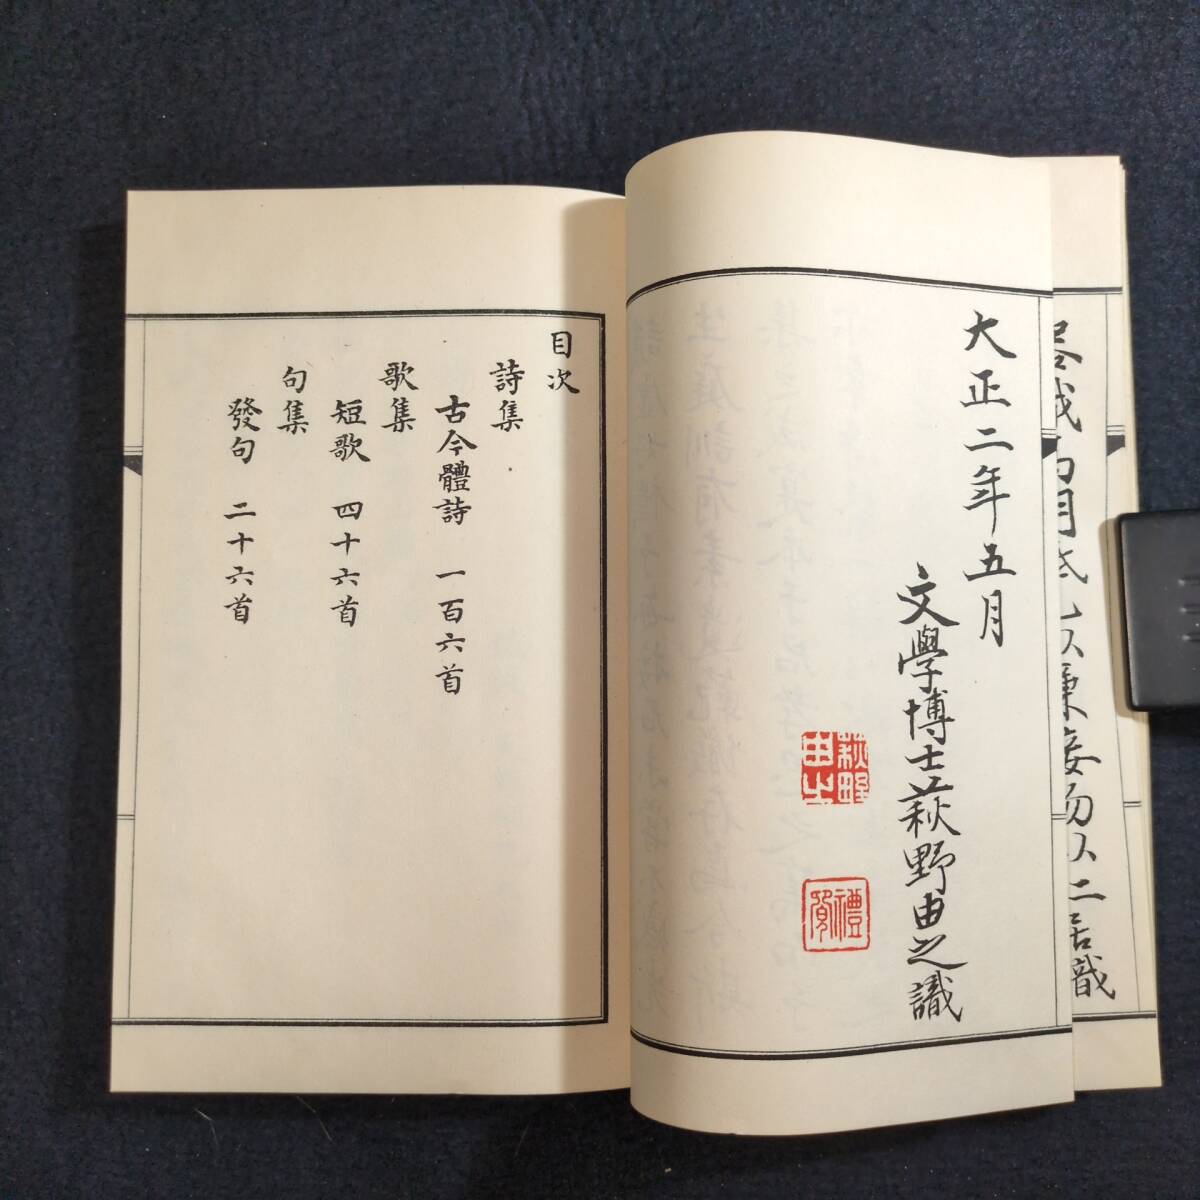 大正二年五月
文學博士萩野由之識
萩野由之
禮卿
目次
詩集
古今體詩 一百六首
歌集
短歌 四十六首
句集
發句 二十六首